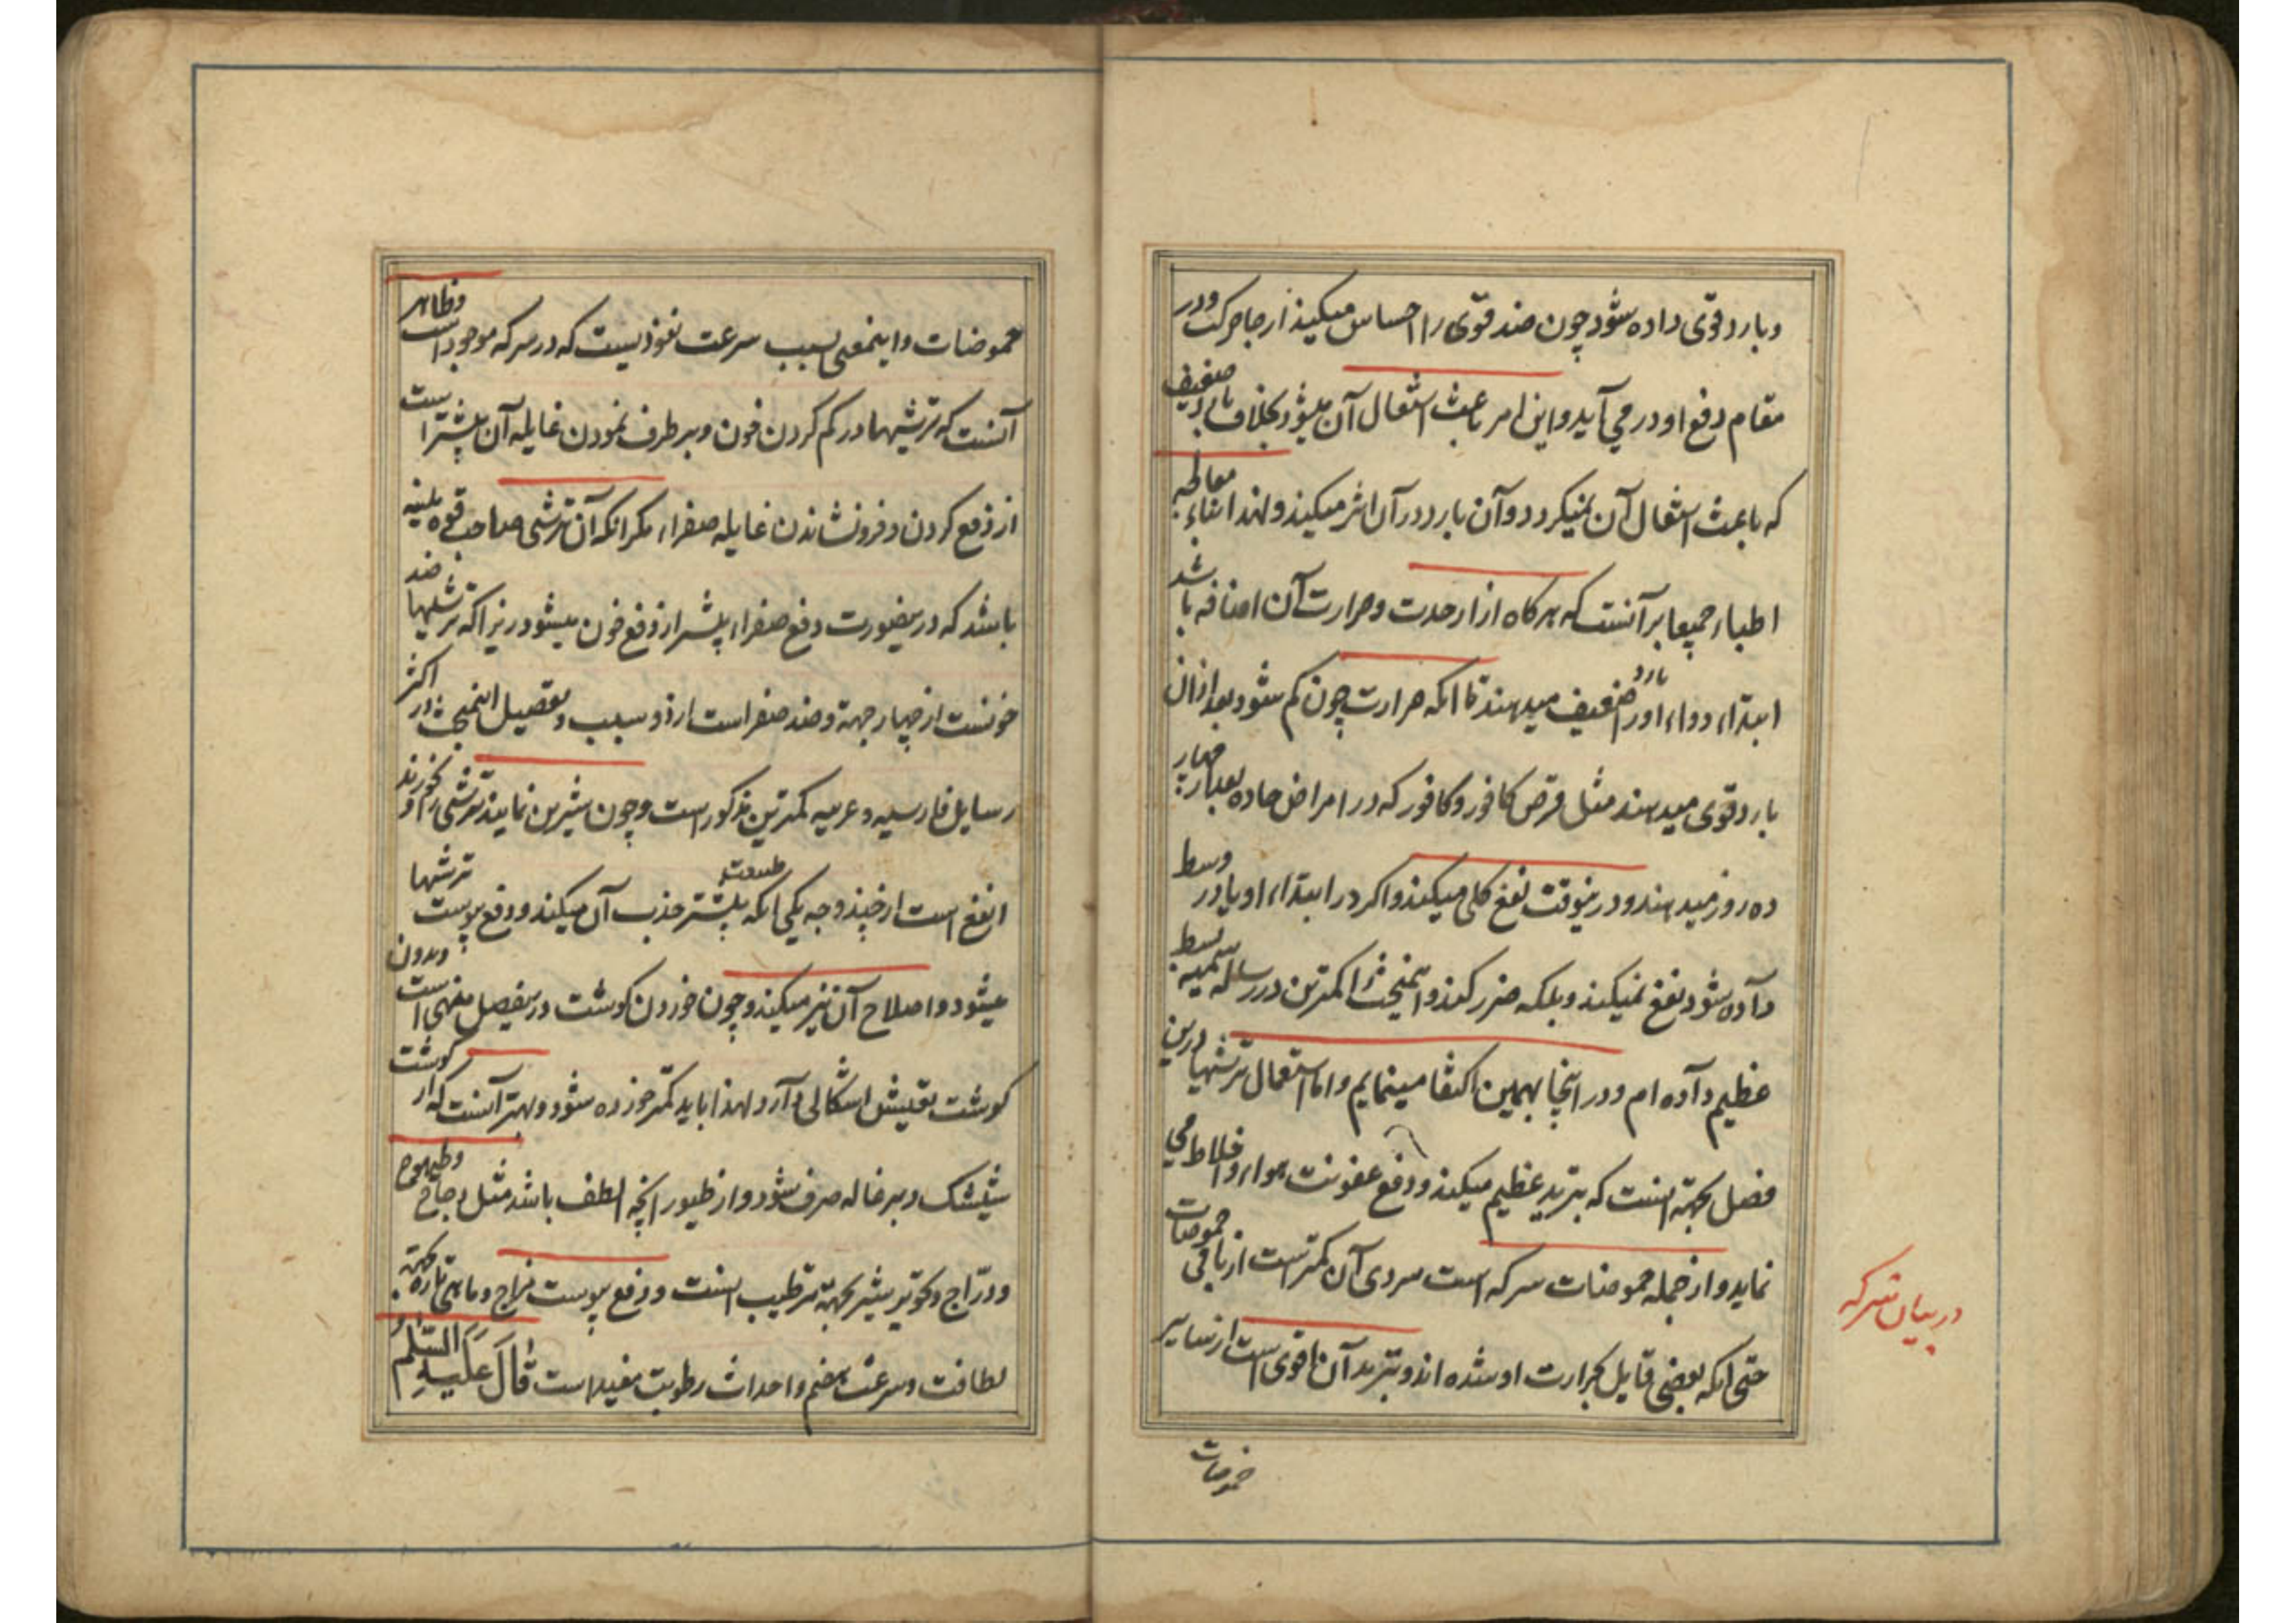 و بارد قوی داده شود چون ضد قوی را احساس میکند از جا حرکت و در
مقام دفع او در می آید و این امر باعث اشتعال آن میشود بخلاف بارد ضعیف
که باعث اشتعال آن نمیگردد و آن بارد در آن اثر میکند و لهذا بناء معالجه
اطباء جمیعا بر آنست که هرگاه ازار حدت و حرارت آن اضافه باشد
ابتداء دواء بارد ضعیف میدهند تا آنکه حرارت چون کم شود بعد از آن
بارد قوی میدهند مثل قرص کافور و کافور که در امراض حاده بعد از چهار
ده روز میدهند و درینوقت نفع کلی میکند و اگر در ابتداء او یا در وسط
داده شود نفع نمیکند و بلکه ضرر کند و اینمبحث را کمترین در رساله سمیه بسط
عظیم داده ام و در اینجا بهمین اکتفا مینمایم و اما استعمال ترشیها درین
فصل بجهة اینست که تبرید عظیم میکند و دفع عفونت هواء و اخلاط می
نماید و از جمله حموضات سرکه است سردی آن کمتر است از باقی حموضات
حتی آنکه بعضی قایل بحرارت او شده اند و تبرید آن اقوی است از سایر
در بیان سرکه
حموضات
حموضات و اینمعنی بسبب سرعت نفوذیست که در سرکه موجود است و ظاهر
آنست که ترشیها در کم کردن خون و برطرف نمودن غایله آن بیشتر است
از دفع کردن و فرونشاندن غایله صفراء مگر آنکه آن ترشی صاحب قوه ملینه
باشد که درینصورت دفع صفراء بیشتر از دفع خون میشود زیرا که ترشیها ضد
خونست از چهار جهة و ضد صفراست از دو سبب و تفصیل اینمبحث در اکثر
رسایل فارسیه و عربیه کمترین مذکور است و چون شیرین نمایند ترشی را و بخورند
انفع است از چند وجه یکی آنکه طبیعت بیشتر جذب آن میکند و دفع یبوست ترشیها
میشود و اصلاح آن نیز میکند و چون خوردن گوشت درینفصل منهی است و بدون
گوشت تعیش اشکالی دارد لهذا باید کمتر خورده شود و بهتر آنست که از گوشت
شیشک و بزغاله صرف شود و از طیور آنچه الطف باشد مثل دجاج و طیهوج
و درّاج و کبوتر بیشتر بجهة ترطیب اینست و دفع یبوست مزاج و ماهی تازه بجهة
لطافت و سرعت هضم و احداث رطوبت مفید است قَالَ عَلَیهِ السَّلَمُ